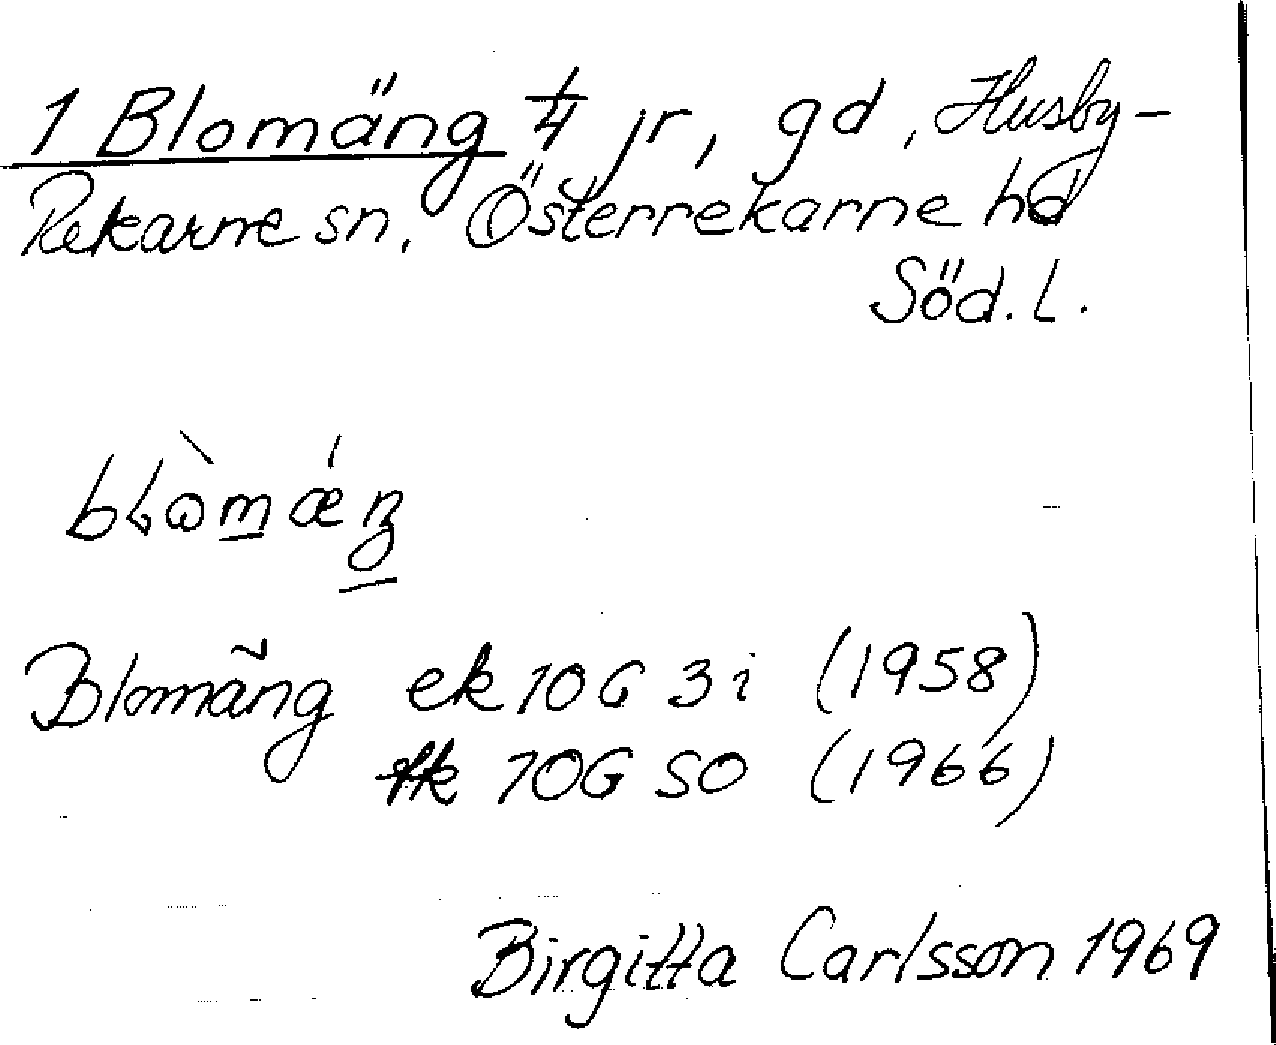 1 Blomäng 1/4 jr, gd, Husby-
Rekarne sn, Österrekarne hd
Söd. l.
blòmǽŋ
Blomäng ek 10G 3i (1958)
tk 10G SO (1966)
Birgitta Carlsson 1969